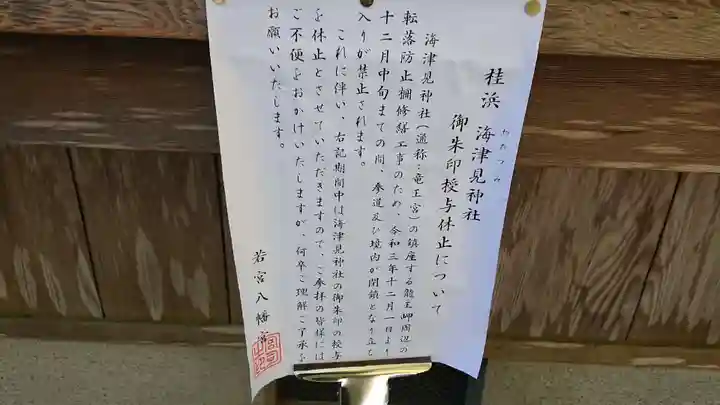 桂浜 海津見神社
わたつみ
御朱印授与休止について
海津見神社(通称:竜王宮)の鎮座する龍王岬周辺の
転落防止柵修繕工事のため、令和三年十二月一日より
十二月中旬までの間、参道及び境内が閉鎖となり立ち
入りが禁止されます。
これに伴い、右記期間中は海津見神社の御朱印の授与
を休止とさせていただきますので、ご参拝の皆様には
ご不便をおかけいたしますが、何卒ご理解ご了承を
お願いいたします。
若宮八幡宮